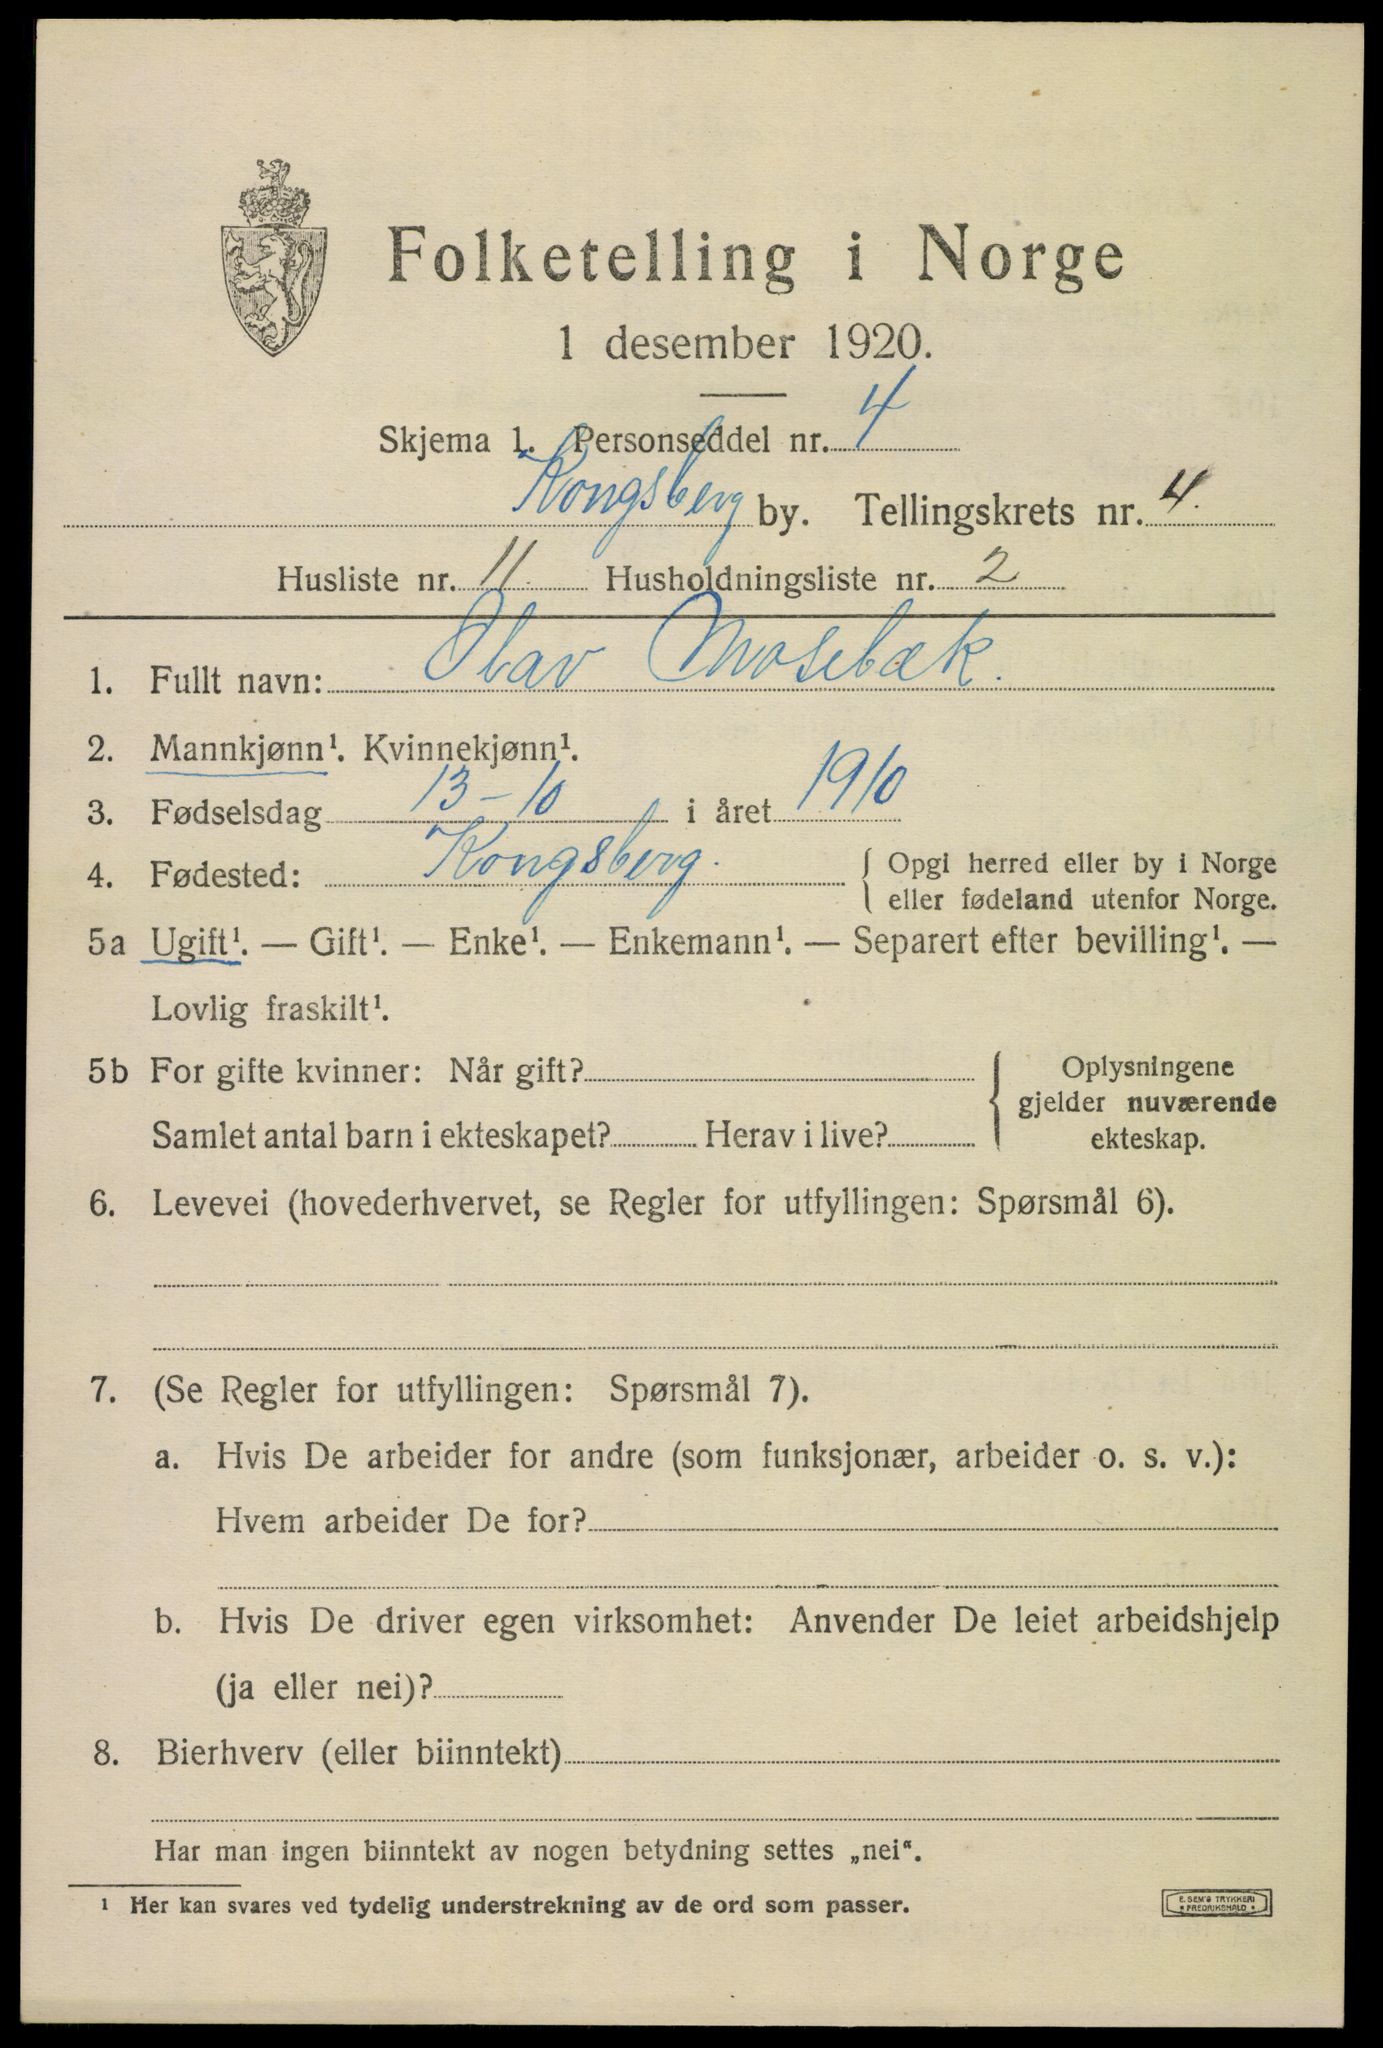 Folketelling i Norge
1 desember 1920.
Skjema 1. Personseddel nr. 4
Kongsberg by. Tellingskrets nr. 4.
Husliste nr. 11. Husholdningsliste nr. 2
1. Fullt navn: Olav Mosebæk.
2. Mannkjønn¹. Kvinnekjønn¹.
3. Fødselsdag 13-10 i året 1910
4. Fødested: Kongsberg. { Opgi herred eller by i Norge
eller fødeland utenfor Norge.
5a Ugift¹. — Gift¹. — Enke¹. — Enkemann¹. — Separert efter bevilling¹. —
Lovlig fraskilt¹.
5b For gifte kvinner: Når gift?
Samlet antal barn i ekteskapet? Herav i live?
{ Oplysningene
gjelder nuværende
ekteskap.
6. Levevei (hovederhvervet, se Regler for utfyllingen: Spørsmål 6).
7. (Se Regler for utfyllingen: Spørsmål 7).
a. Hvis De arbeider for andre (som funksjonær, arbeider o. s. v.):
Hvem arbeider De for?
b. Hvis De driver egen virksomhet: Anvender De leiet arbeidshjelp
(ja eller nei)?
8. Bierhverv (eller biinntekt)
Har man ingen biinntekt av nogen betydning settes „nei“.
¹ Her kan svares ved tydelig understrekning av de ord som passer.
E. SEM'S TRYKKERI
* FREDRIKSHALD *